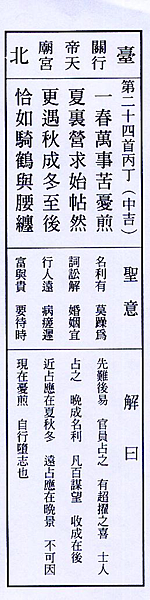 臺北
關行
帝天
廟宮
第二十四首丙丁(中吉)
一春萬事苦憂煎
夏裏營求始帖然
更遇秋成冬至後
恰如騎鶴與腰纏
聖意
名利有 莫躁為
詞訟解 婚姻宜
行人遠 病瘥遲
富與貴 要待時
解曰
先難後易 官員占之 有超擢之喜 士人
占之 晚成名利 凡百謀望 收成在後
近占應在夏秋冬 遠占應在晚景 不可因
現在憂煎 自行墮志也